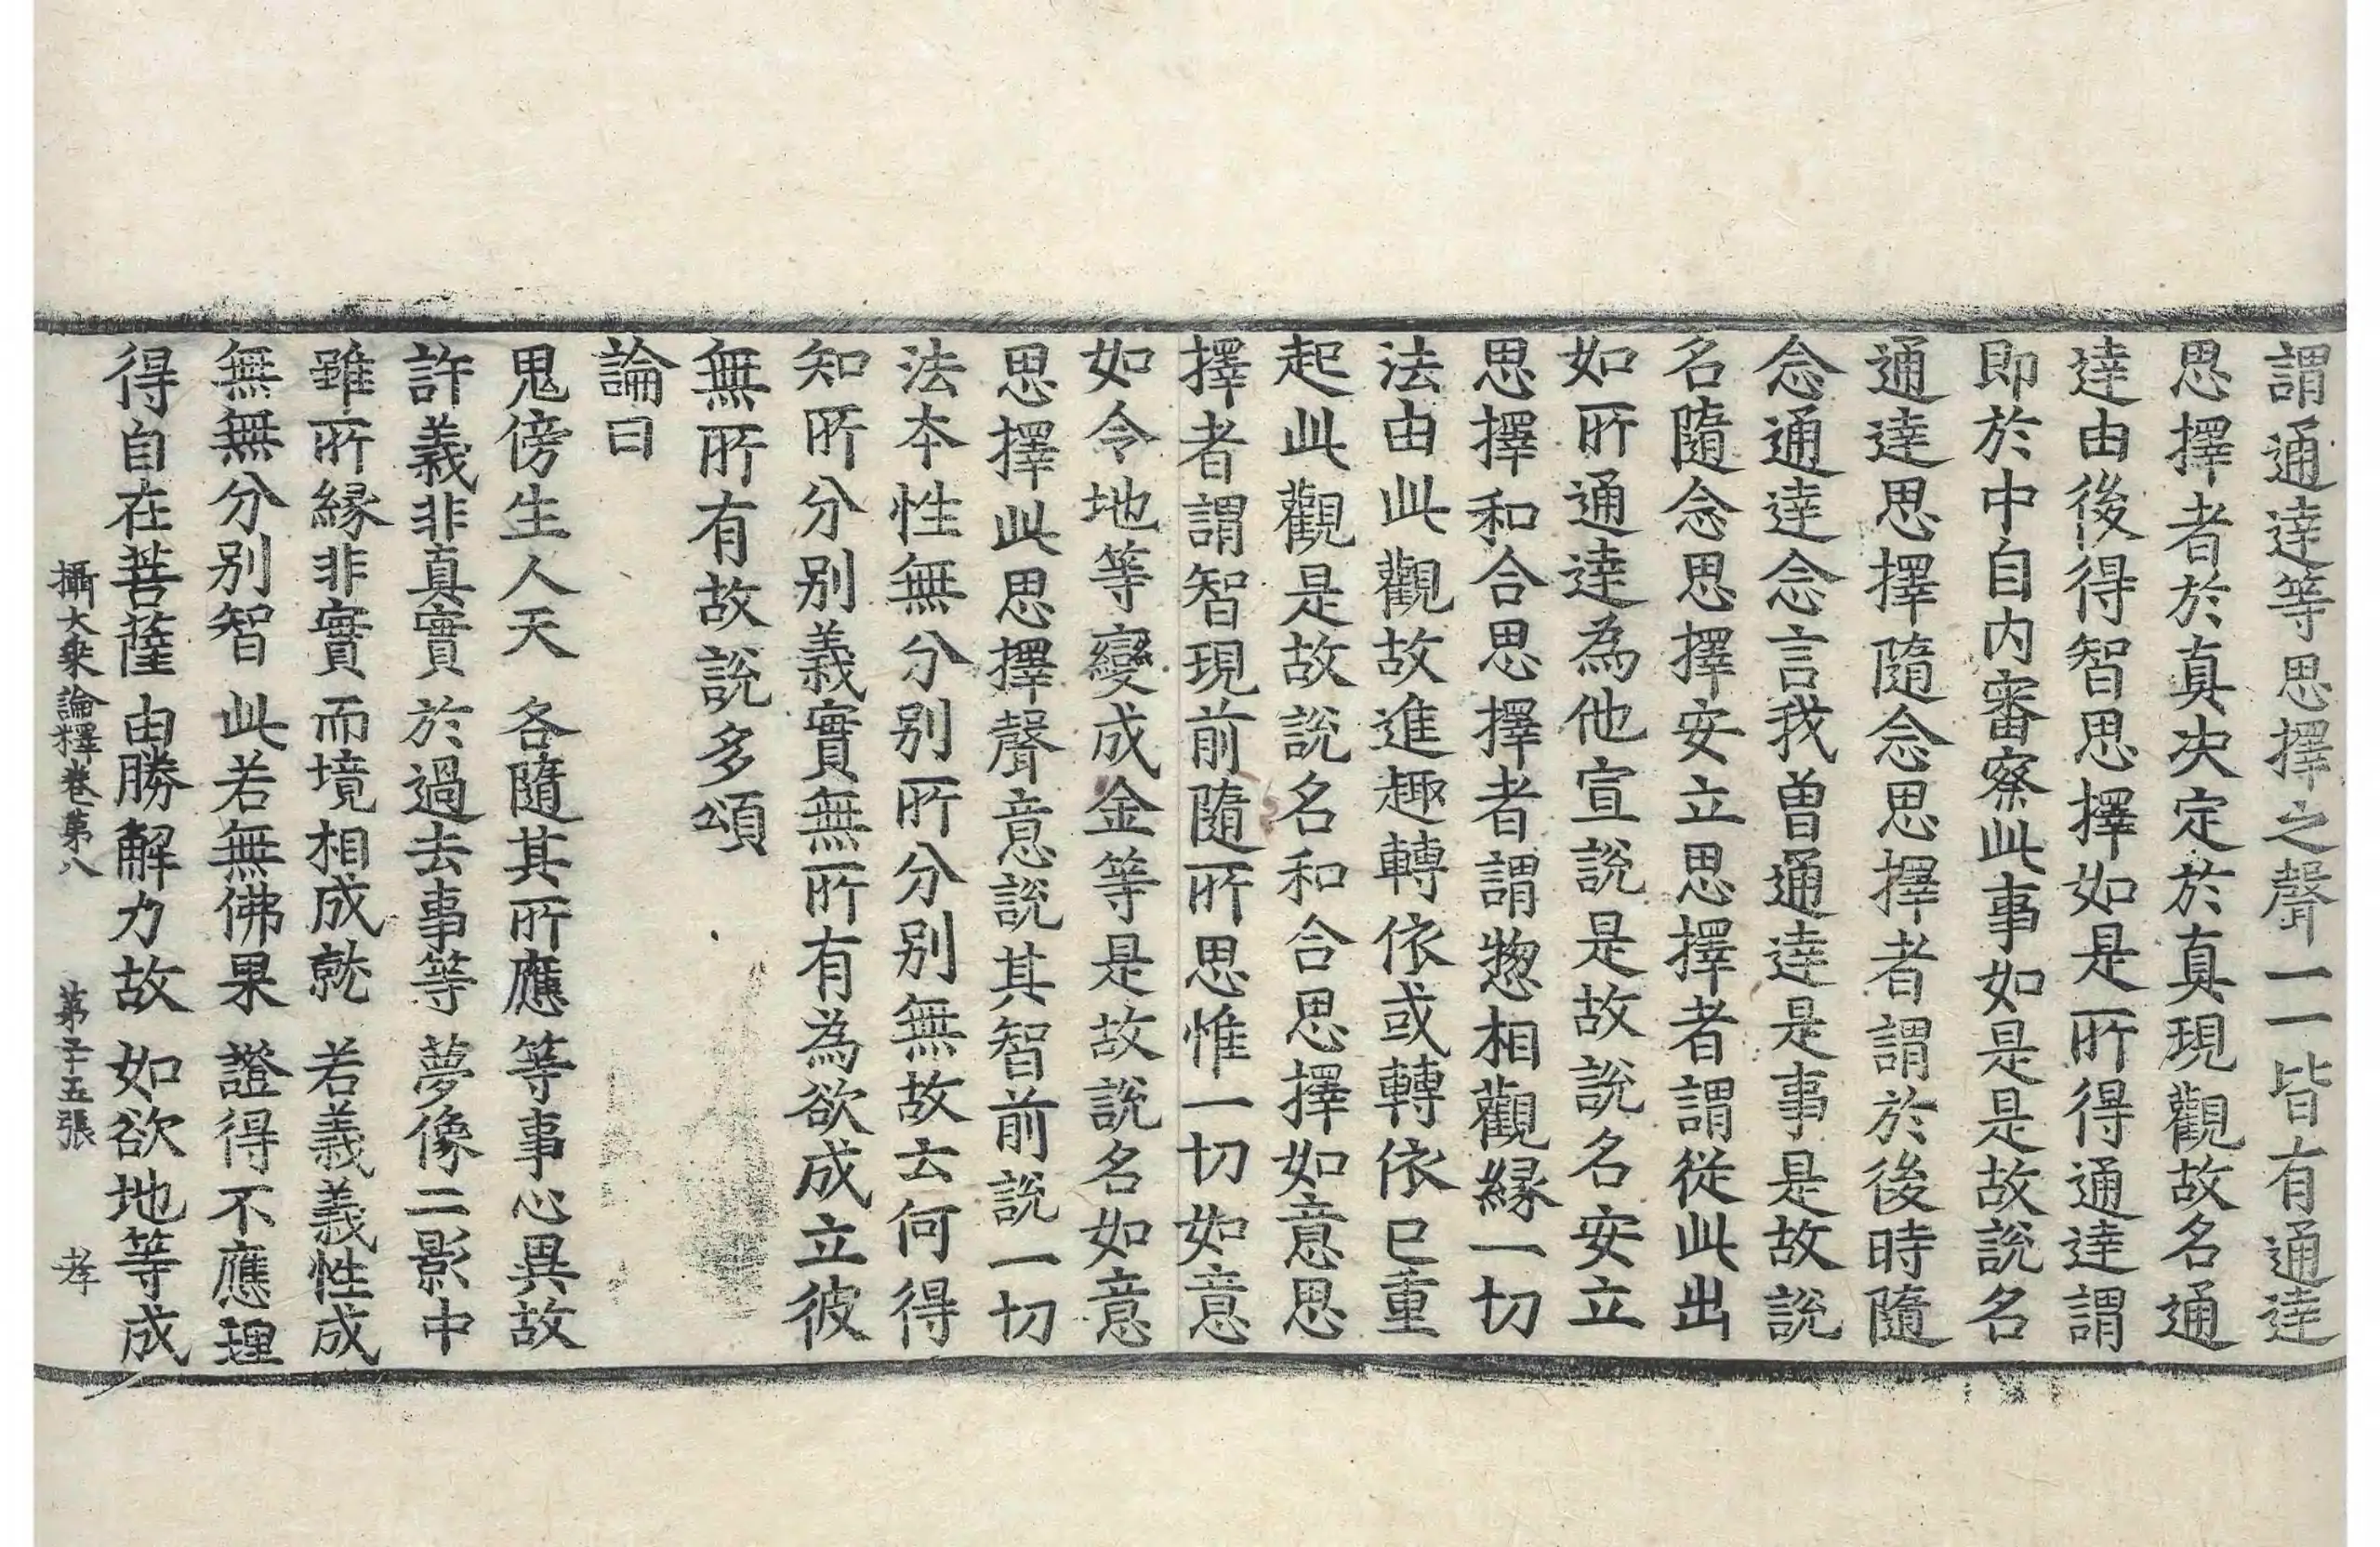 謂通達等思擇之聲一一皆有通達
思擇者於真决定於真現觀故名通
達由後得智思擇如是所得通達謂
即於中自内審察此事如是是故説名
通達思擇隨念思擇者謂於後時隨
念通達念言我曾通達是事是故説
名隨念思擇安立思擇者謂從此出
如所通達為他宣説是故説名安立
思擇和合思擇者謂惣相觀緣一切
法由此觀故進趣轉依或轉依已重
起此觀是故説名和合思擇如意思
擇者謂智現前隨所思惟一切如意
如令地等變成金等是故説名如意
思擇此思擇聲意説其智前説一切
法本性無分别所分别無故云何得
知所分别義實無所有為欲成立彼
無所有故説多頌
論曰
鬼傍生人天 各隨其所應 等事心異故
許義非真實 於過去事等 夢像二影中
雖所緣非實 而境相成就 若義義性成
無無分别智 此若無佛果 證得不應理
得自在菩薩 由勝解力故 如欲地等成
攝大乘論釋卷第八 第子五張 孝